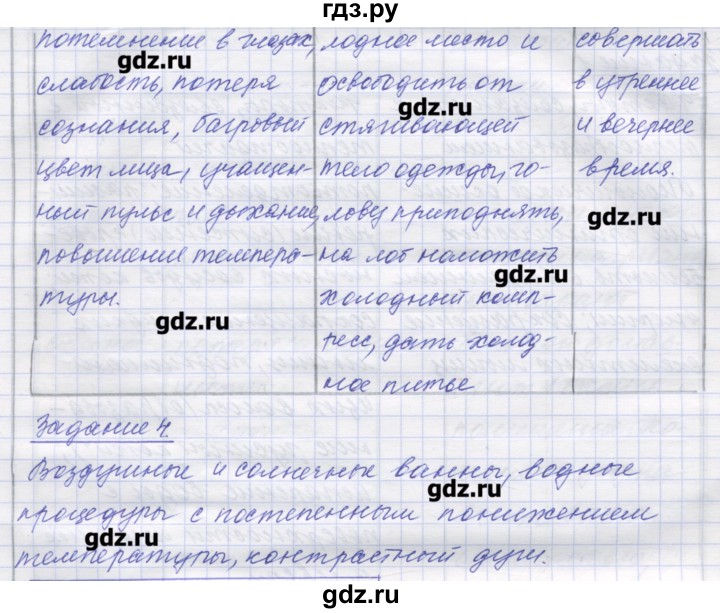 гдз.ру
потемнение в глазах,
слабость, потеря
сознания, багровый
цвет лица, учащен-
ный пульс и дыхание,
повышение темпера-
туры.
лодное место и
освободить от
стягивающей
тело одежды, го-
лову приподнять,
на лоб наложить
холодный комп-
ресс, дать холод-
ное питье
совершать
в утреннее
и вечернее
время.
gdz.ru
gdz.ru
gdz.ru
gdz.ru
gdz.ru
Задание 4.
Воздушные и солнечные ванны, водные
процедуры с постепенным понижением
температуры, контрастный душ.
gdz.ru
gdz.ru
gdz.ru